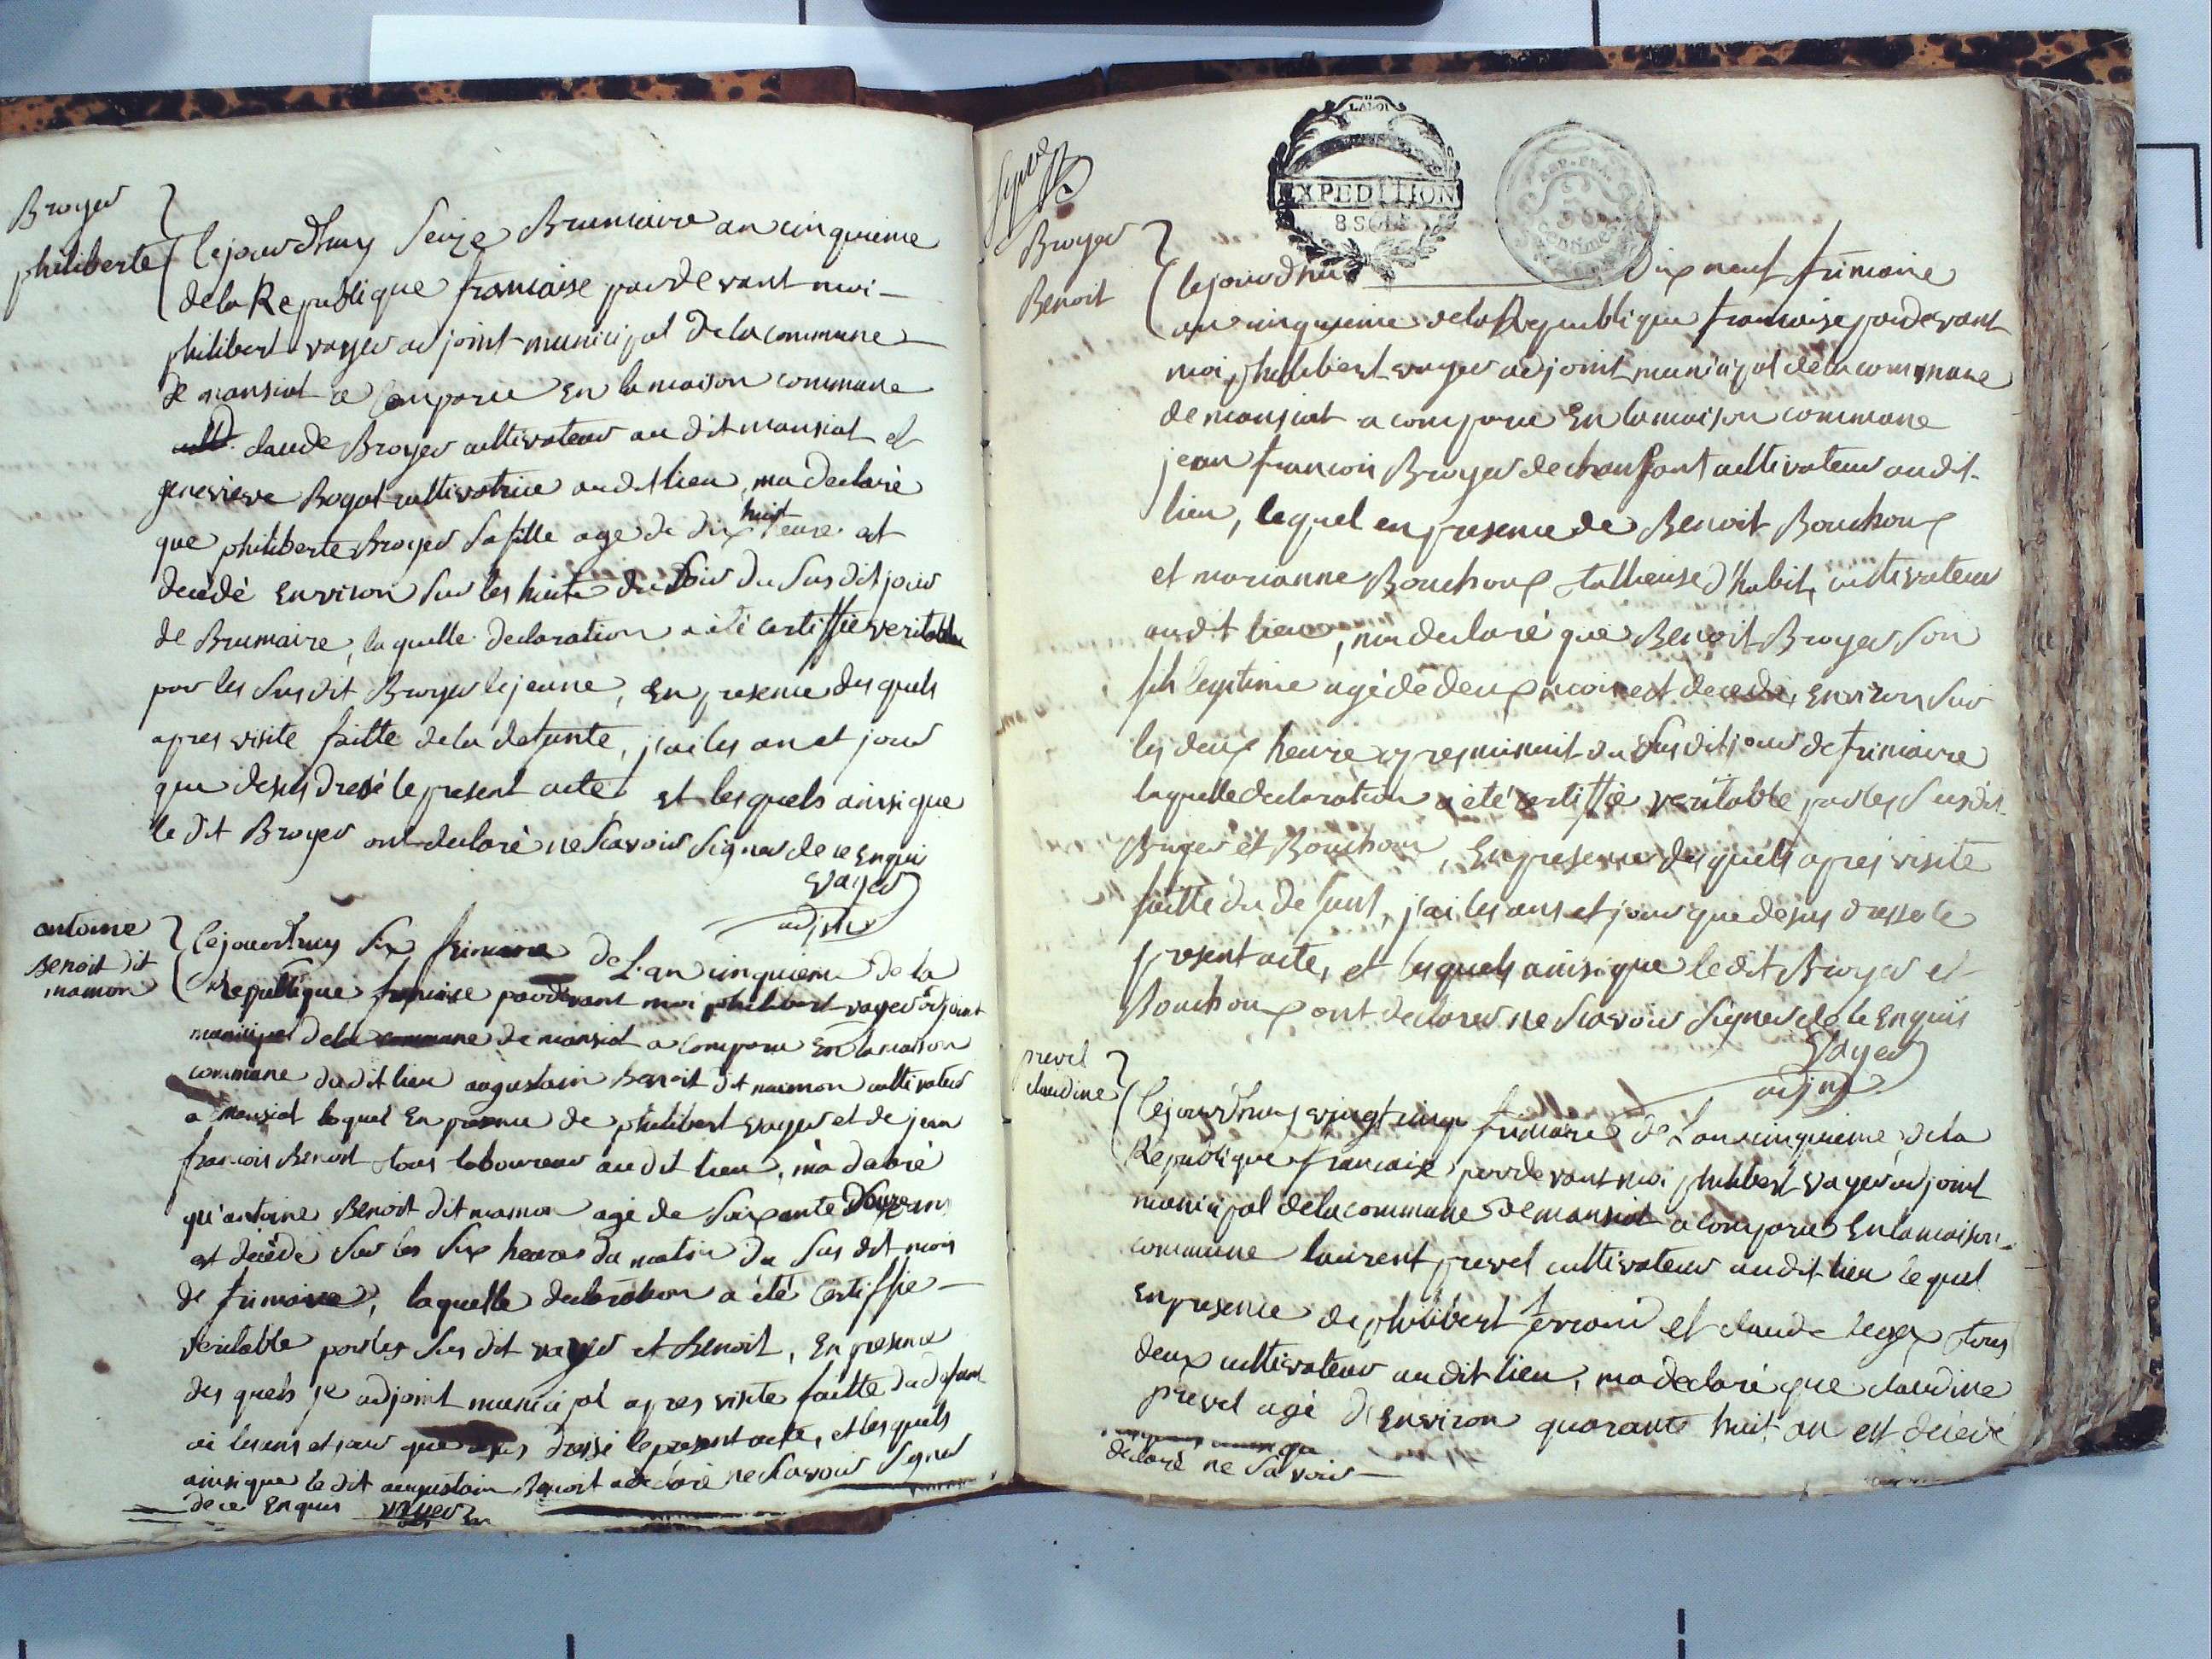 Broyer
philiberte
Cejourdhuy Seize Brumaire an cinquieme
de la Republique francaise pardevant moi
philibert vayer adjoint municipal de la commune
de mansiat a Comparu En la maison commune
claude Broyer cultivateur au dit mansiat et
genevieve Bogat cultivatrice au dit lieu, ma declaré
que philiberte Broyer sa fille age de dix huit est
decédé Environ Sur les huite du Soir du Sus dit jour
de Brumaire, la quelle declaration a été certiffié veritable
par les Sus dit Broyer lejeune, En presence des quels
apres visite faitte de la defunte, j'ai les an et jour
que desus dressé le present acte, et les quels ainsi que
le dit Broyer ont declaré ne Savoir Signer de ce Enquis
Vayer
adjoint
antoine
Benoit dit
mamon
Cejourdhuy Six frimaire de L'an cinquieme de la
Republique francaise pardevant moi philibert vayer adjoint
municipal de la commune de mansiat a Comparu En la maison
commune du dit lieu augustain Benoit dit mamon cultivateur
a mansiat lequel En presence de philibert vayer et de jean
francois Benoit tous laboureur au dit lieu, m'a declaré
qu'antoine Benoit dit mamon agé de Soixante Douze ans
est decédé Sur les Six heures du matin du Sus dit mois
de frimaire, laquelle declaration a été Certiffie
veritable par les Sus dit vayer et Benoit, En presence
des quels je adjoint municipal apres visite faitte du defunt
ai les ans et jour que desus dressé le present acte, et les quels
ainsi que le dit augustain Benoit a declaré ne Savoir Signer
de ce Enquis vayer
LA LOI
EXPEDITION
8 SOLS
REP. FRA.
Centimes
Broyer
Benoit
Cejourdhui Dix neuf frimaire
an cinquieme de la Republique francaise pardevant
moi, philibert vayer adjoint municipal de la commune
de mansiat a comparu En la maison commune
jean francois Broyer de chanfant cultivateur au dit
lieu, lequel en presence de Benoit Bouchoux
et marianne Bouchoux talheuse d'habit, cultivateur
au dit lieu, ma declaré que Benoit Broyer Son
fils legitime agé de deux mois est decedé, Environ Sur
les deux heure apres minuit du Sus dit jour de frimaire
laquelle declaration a été certiffié veritable par les Susdit
Broyer et Bouchoux, En presence des quels apres visite
faitte du defunt, j'ai les ans et jour que desus dressé le
present acte, et les quels ainsi que le dit Broyer et
Bouchoux ont declarer ne Scavoir Signer de ce Enquis
Vayer
adjoint
prevel
claudine
Cejourdhuy vingt cinq frimaire de L'an cinquieme de la
Republique francaise pardevant moi philibert vayer adjoint
municipal de la commune de mansiat a comparu En la maison
commune laurent prevel cultivateur au dit lieu lequel
En presence de philibert ferrand et claude tous
deux cultivateur au dit lieu, ma declaré que claudine
prevel agé d'Environ quarante huit an est décédé
declaré ne Savoir